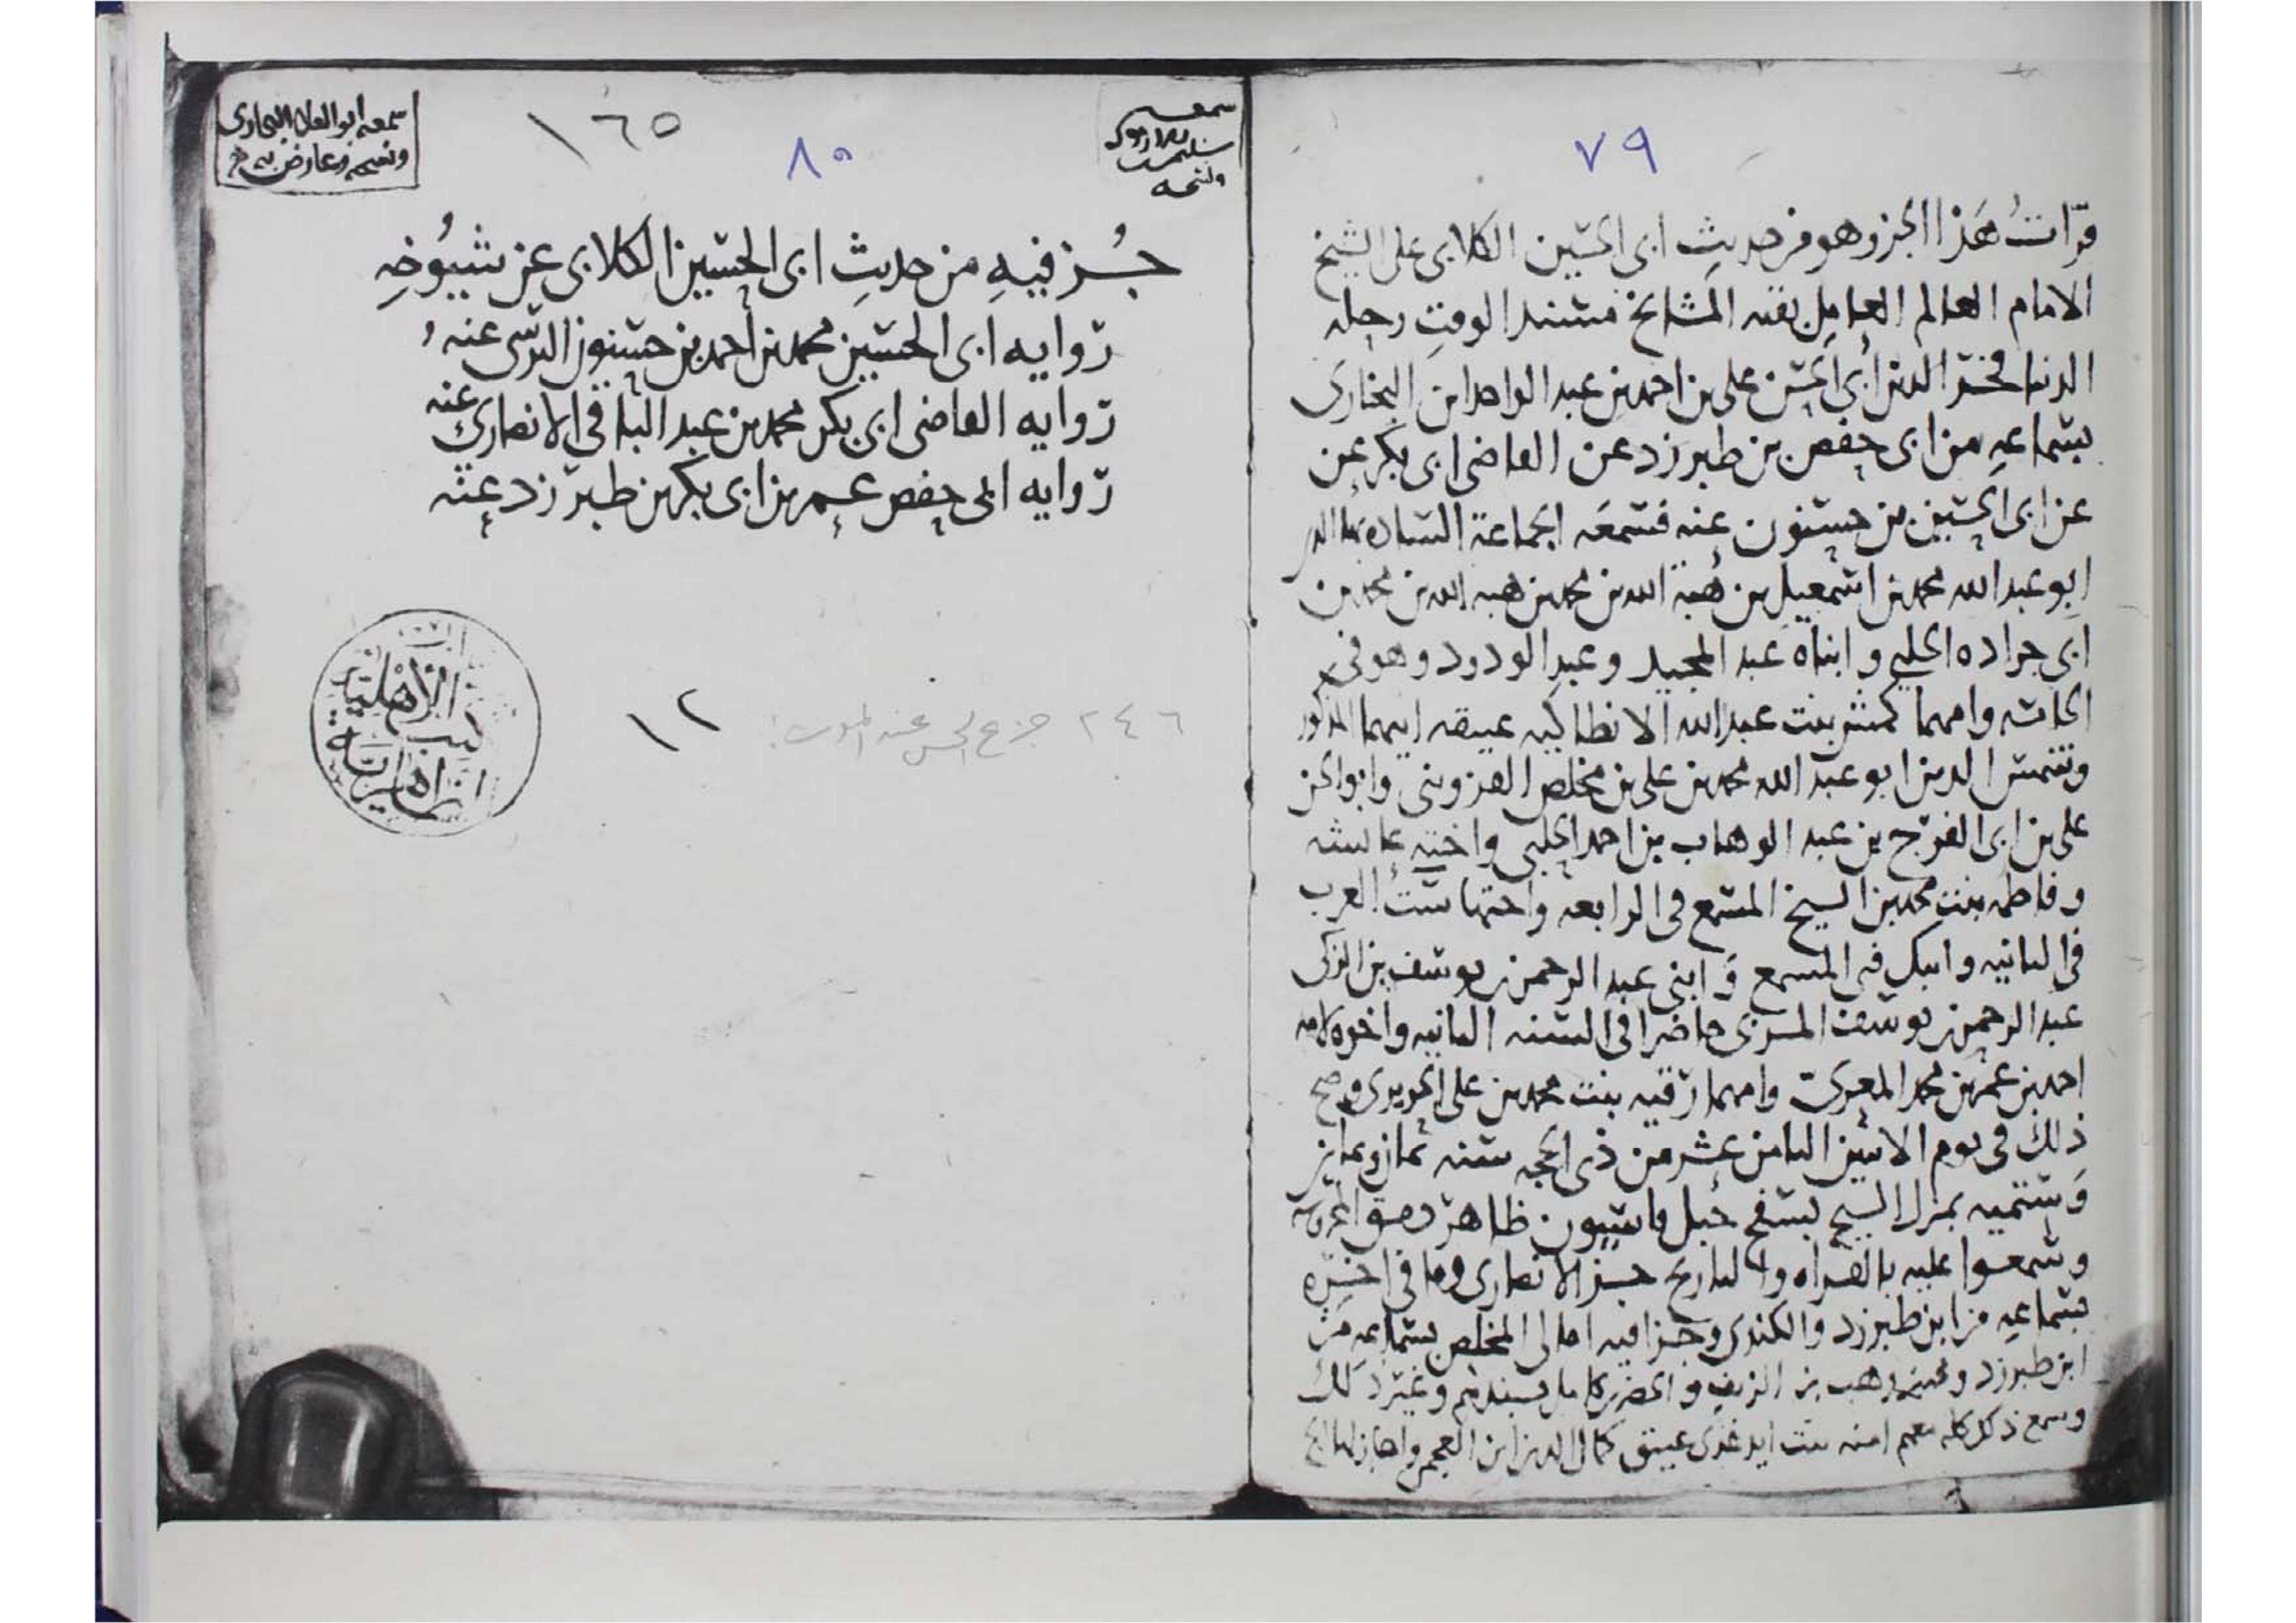 ٧٩
قرأتُ هَذا الجزو هو من حديثِ ابى الحسين الكلابى على الشيخ
الامام العالم العامل بقيه المشايخ مسند الوقتِ رحله
الدنيا فخر الدين أبى الحسن على بن احمد بن عبد الواحد ابن البخارى
بسماعهِ من ابى حفص بن طبرزد عن القاضى ابى بكر عن
عن ابى الحسين بن حسنون عنه فسمعَه الجماعة الساده
ابو عبد الله محمد بن اسمعيل بن هبة الله بن محمد بن هبه الله بن محمد بن
ابى جراده الحلبى و ابناه عبد المجيد و عبد الودود وهو فى
وامهما بنت عبد الله الانطاكيه عتيقه ابيهما المذكور
وشمس الدين ابو عبد الله محمد بن على بن مخلص القزوينى وابو الحسن
على بن ابى الفرج بن عبد الوهاب بن احمد الحلبى واخته عائشه
وفاطمه بنت محمد بن الشيخ المسمع فى الرابعه واختها ستُ العرب
فى الثانيه المسمع وَ ابنى عبد الرحمن بن يوسف بن الزكى
عبد الرحمن بن يوسف المزى حاضرا فى السنه الثانيه واخوه لامه
احمد بن عمر بن محمد وامهما رقيه بنت محمد بن على الحويرى وصح
ذلك فى يوم الاثنين الثامن عشر من ذى الحجه سنه ثمان وثمانين
وَ ستميه بمنزل الشيخ بسفح جبل قاسيون ظاهر دمشق المحروسه
وسمعوا عليه بالقراه والتاريخ جزالانصارى وما فى اخره
بسماعهِ من ابن طبرزد والكندى وجزا فيه امالى المخلص بسماعه من
ابن طبرزد وهب بن الزنف و الخضر بن كامل بسندهم وغير ذلك
وسمع ذلك كله معهم امنه بنت ايدغدى عتيق كمال الدين ابن العجمى واجاز لها
سمعه
ونسخه
٨٠
١٦٥
سمعه ابو العلا البخارى
ونسخه وعارض به
جُز فيهِ من حديثِ ابى الحسين الكلابى عن شيُوخهِ
روايه ابى الحسين محمد بن أحمد بن حسنون النرسى عنه
روايه القاضى ابى بكر محمد بن عبد الباقى الانصارى عنه
روايه ابى حفص عمر بن ابى بكر بن طبرزد عنه
٢٤٦
١٢